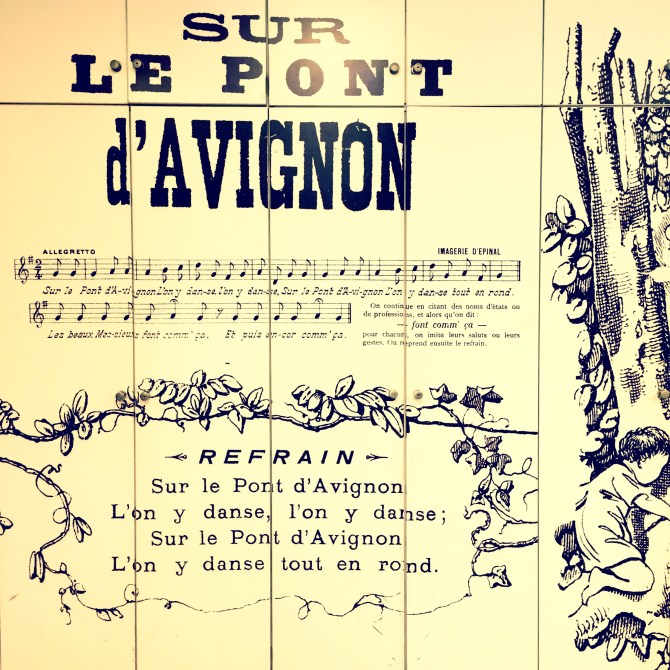 SUR
LE PONT
d'AVIGNON
ALLEGRETTO
IMAGERIE D'EPINAL
Sur le Pont d'A-vi-gnon L'on y dan-se, l'on y dan-se, Sur le Pont d'A-vi-gnon L'on y dan-se tout en rond.
Les beaux Mes-sieurs font comm' ça. Et puis en-cor comm' ça.
On continue en citant des noms d'états ou
de professions, et alors qu'on dit :
— font comm' ça —
pour chacun, on imite leurs saluts ou leurs
gestes. On reprend ensuite le refrain.
REFRAIN
Sur le Pont d'Avignon
L'on y danse, l'on y danse;
Sur le Pont d'Avignon
L'on y danse tout en rond.